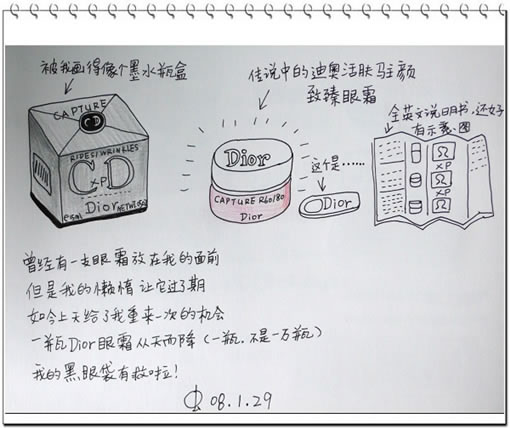 被我画得像个墨水瓶盒
传说中的迪奥活肤驻颜
致臻眼霜
全英文说明书,还好
有示意图
这个是……
CAPTURE
CD
RIDES/WRINKLES
CD
XP
Dior
Dior
CAPTURE R60/80
Dior
Dior
XP
XP
曾经有一支眼霜放在我的面前
但是我的懒惰让它过了期
如今上天给了我重来一次的机会
一瓶Dior眼霜从天而降(一瓶.不是一万瓶)
我的黑眼袋有救啦!
08.1.29